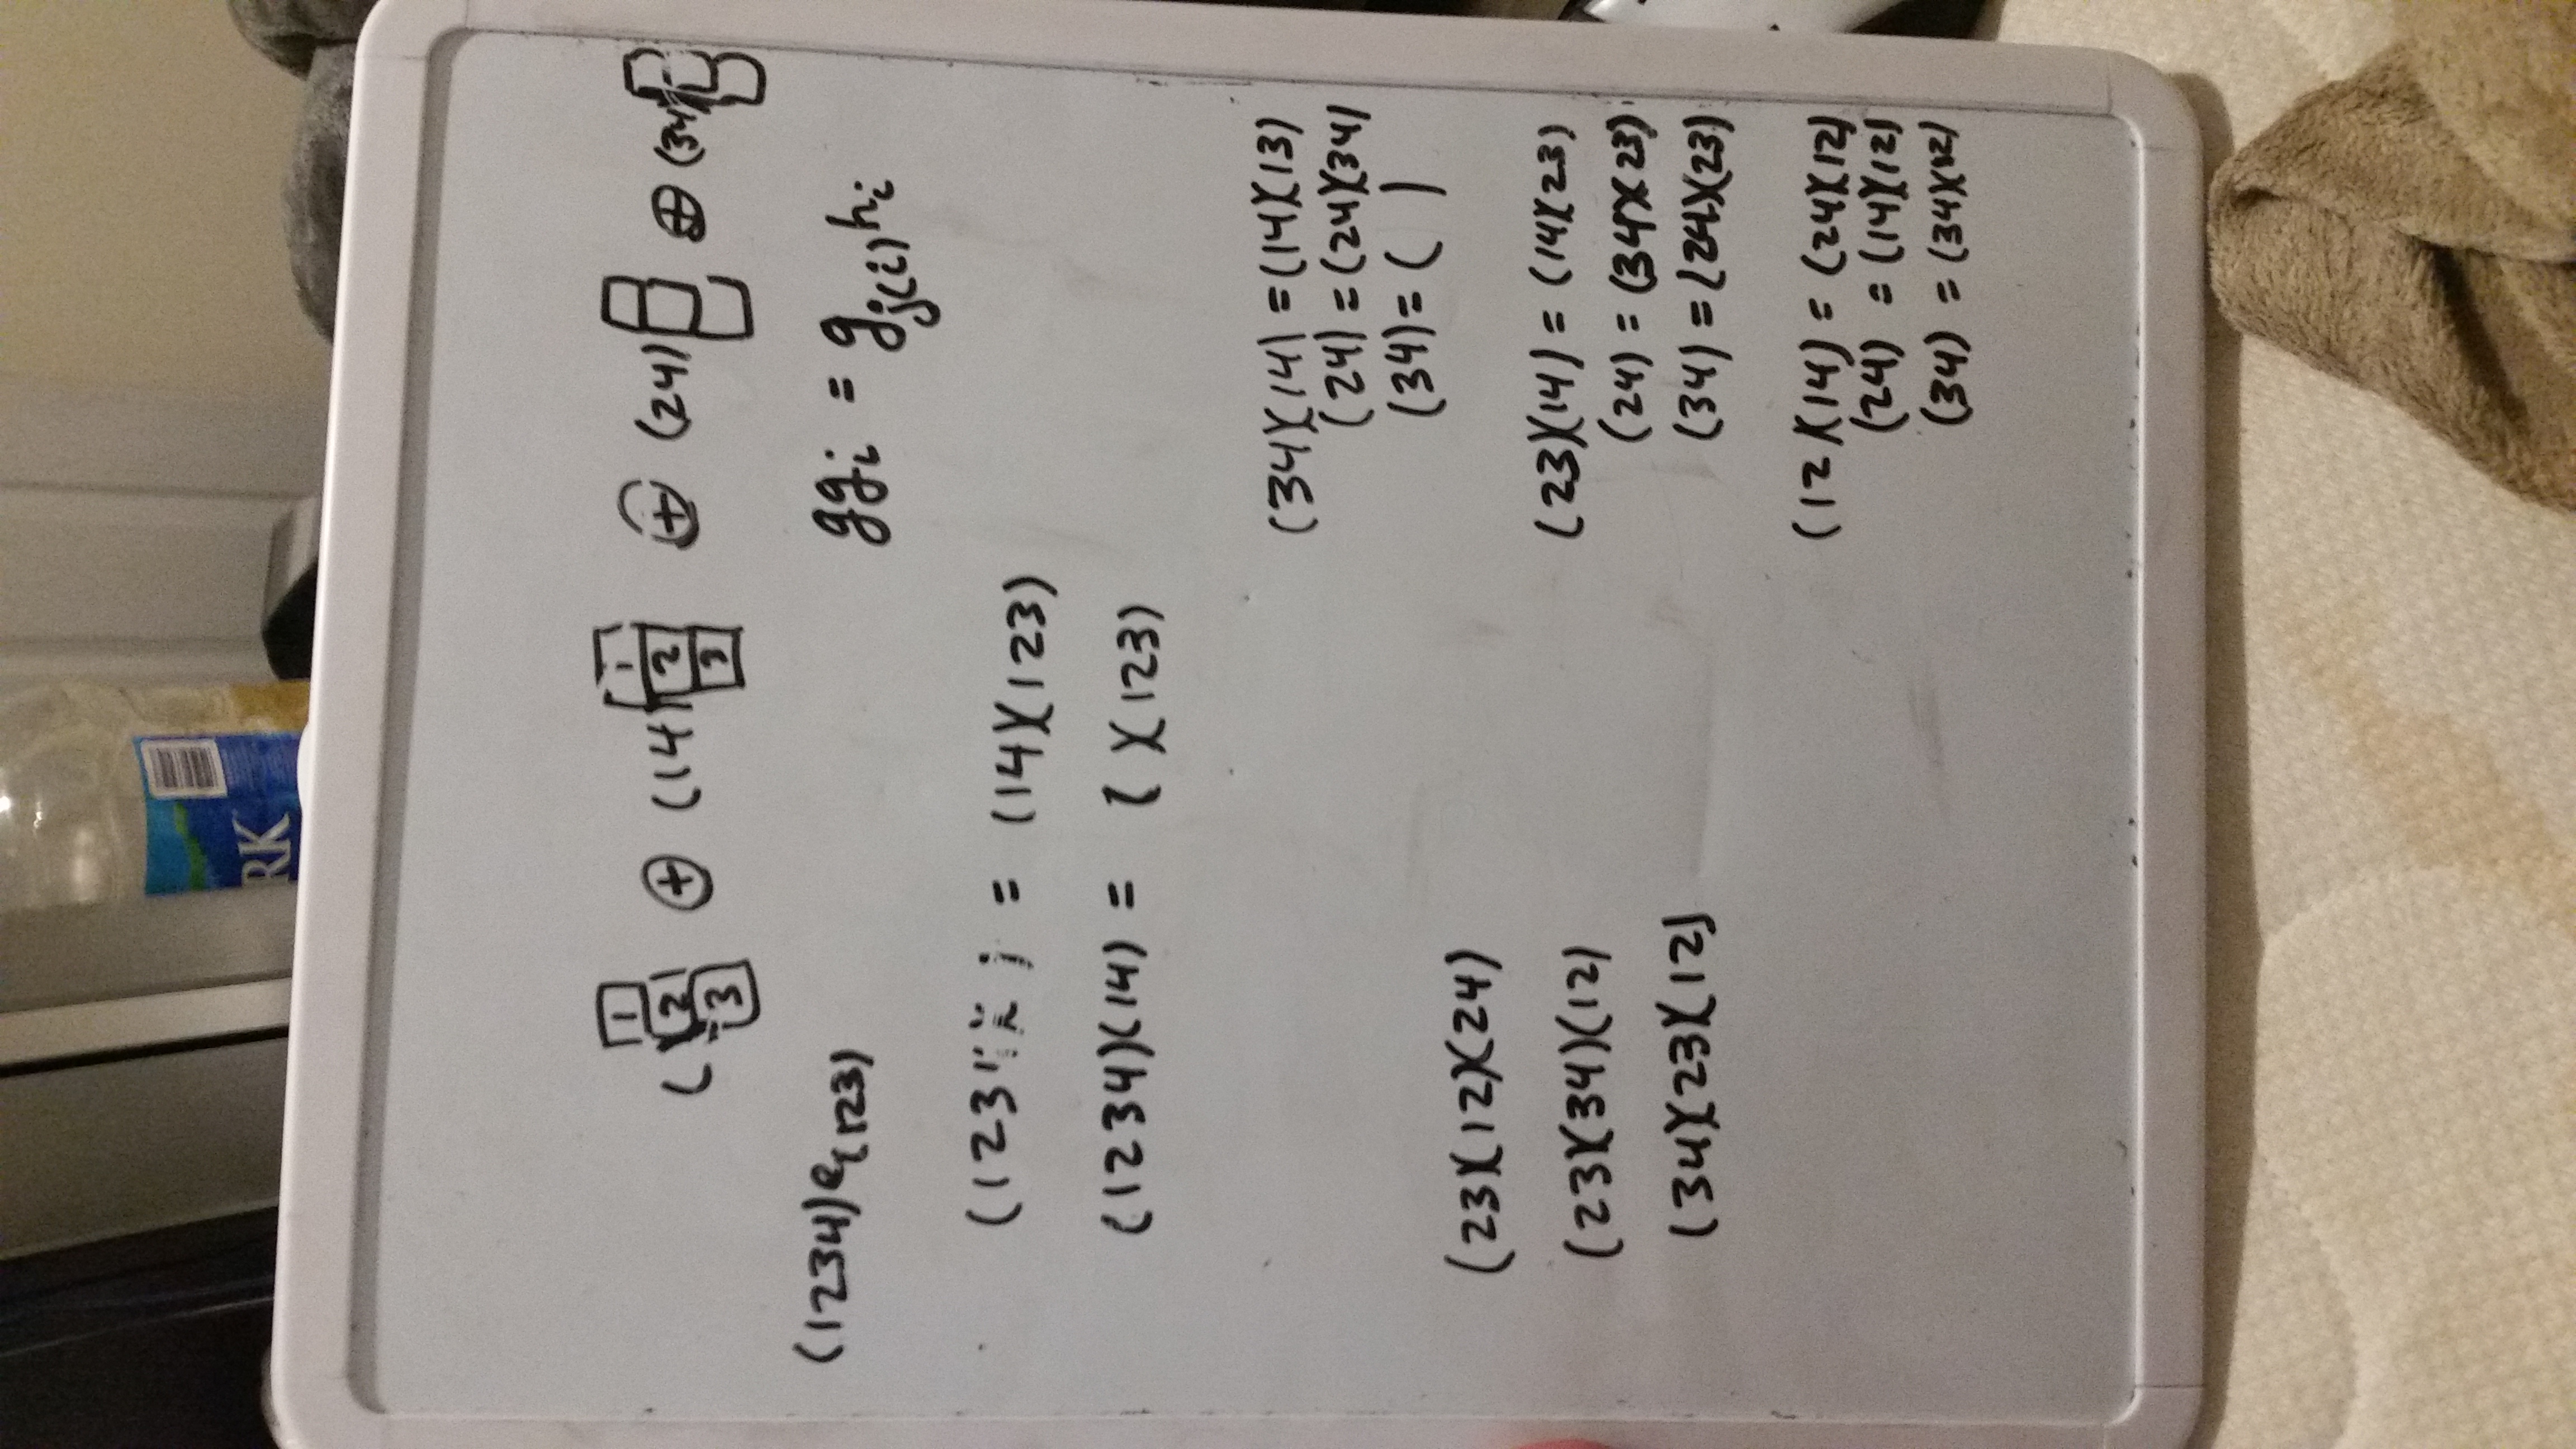 RK
( 1 2 3 ⊕ (14) 1 2 3 ⊕ (24) ⊕ (34)
(1234)e(123)
gg_i = g_{j(i)} h_i
(123 = (14)(123)
(1234)(14) = ( )(123)
(34)(14) = (14)(13)
(24) = (24)(34)
(34) = ( )
(23)(12)(24)
(23)(34)(12)
(34)(23)(12)
(23)(14) = (14)(23)
(24) = (34)(23)
(34) = (24)(23)
(12)(14) = (24)(12)
(24) = (14)(12)
(34) = (34)(12)